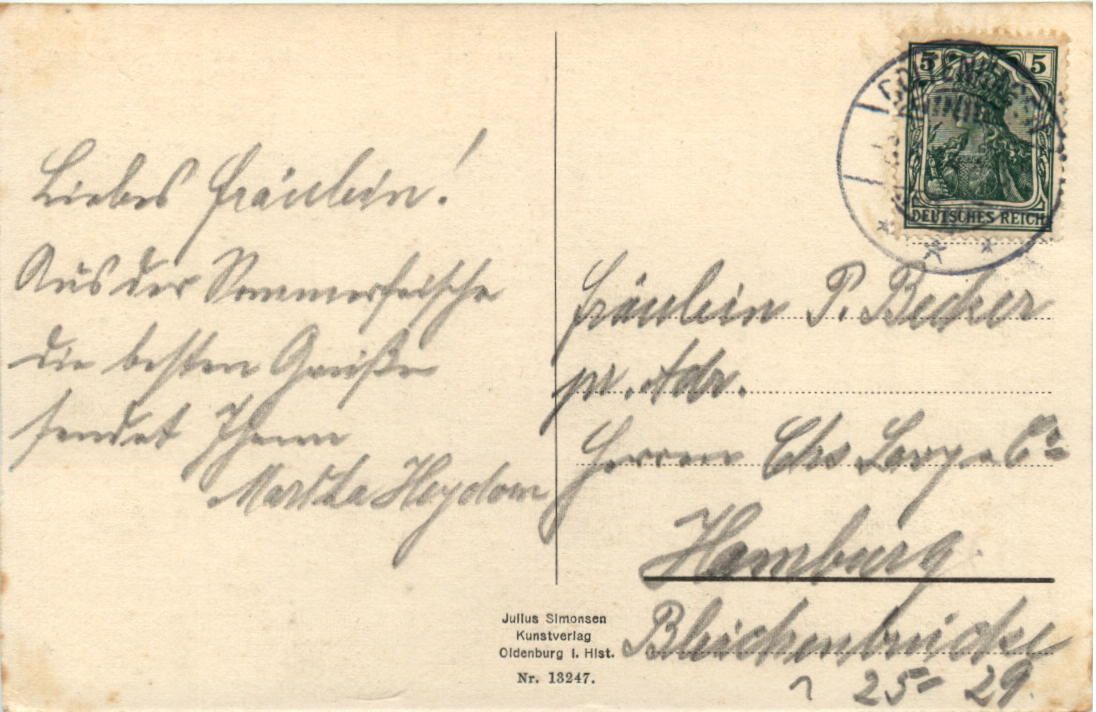 Liebes Fräulein!
Aus der Sommerfrische
die besten Grüße
sendet Ihnen
Martha Heydorn
5 5
DEUTSCHES REICH
Fräulein P. Becker
pr. Adr.
Herren Chs Lavy & Co
Hamburg.
Bleichenbrücke
25-29.
Julius Simonsen
Kunstverlag
Oldenburg i. Hlst.
Nr. 13247.